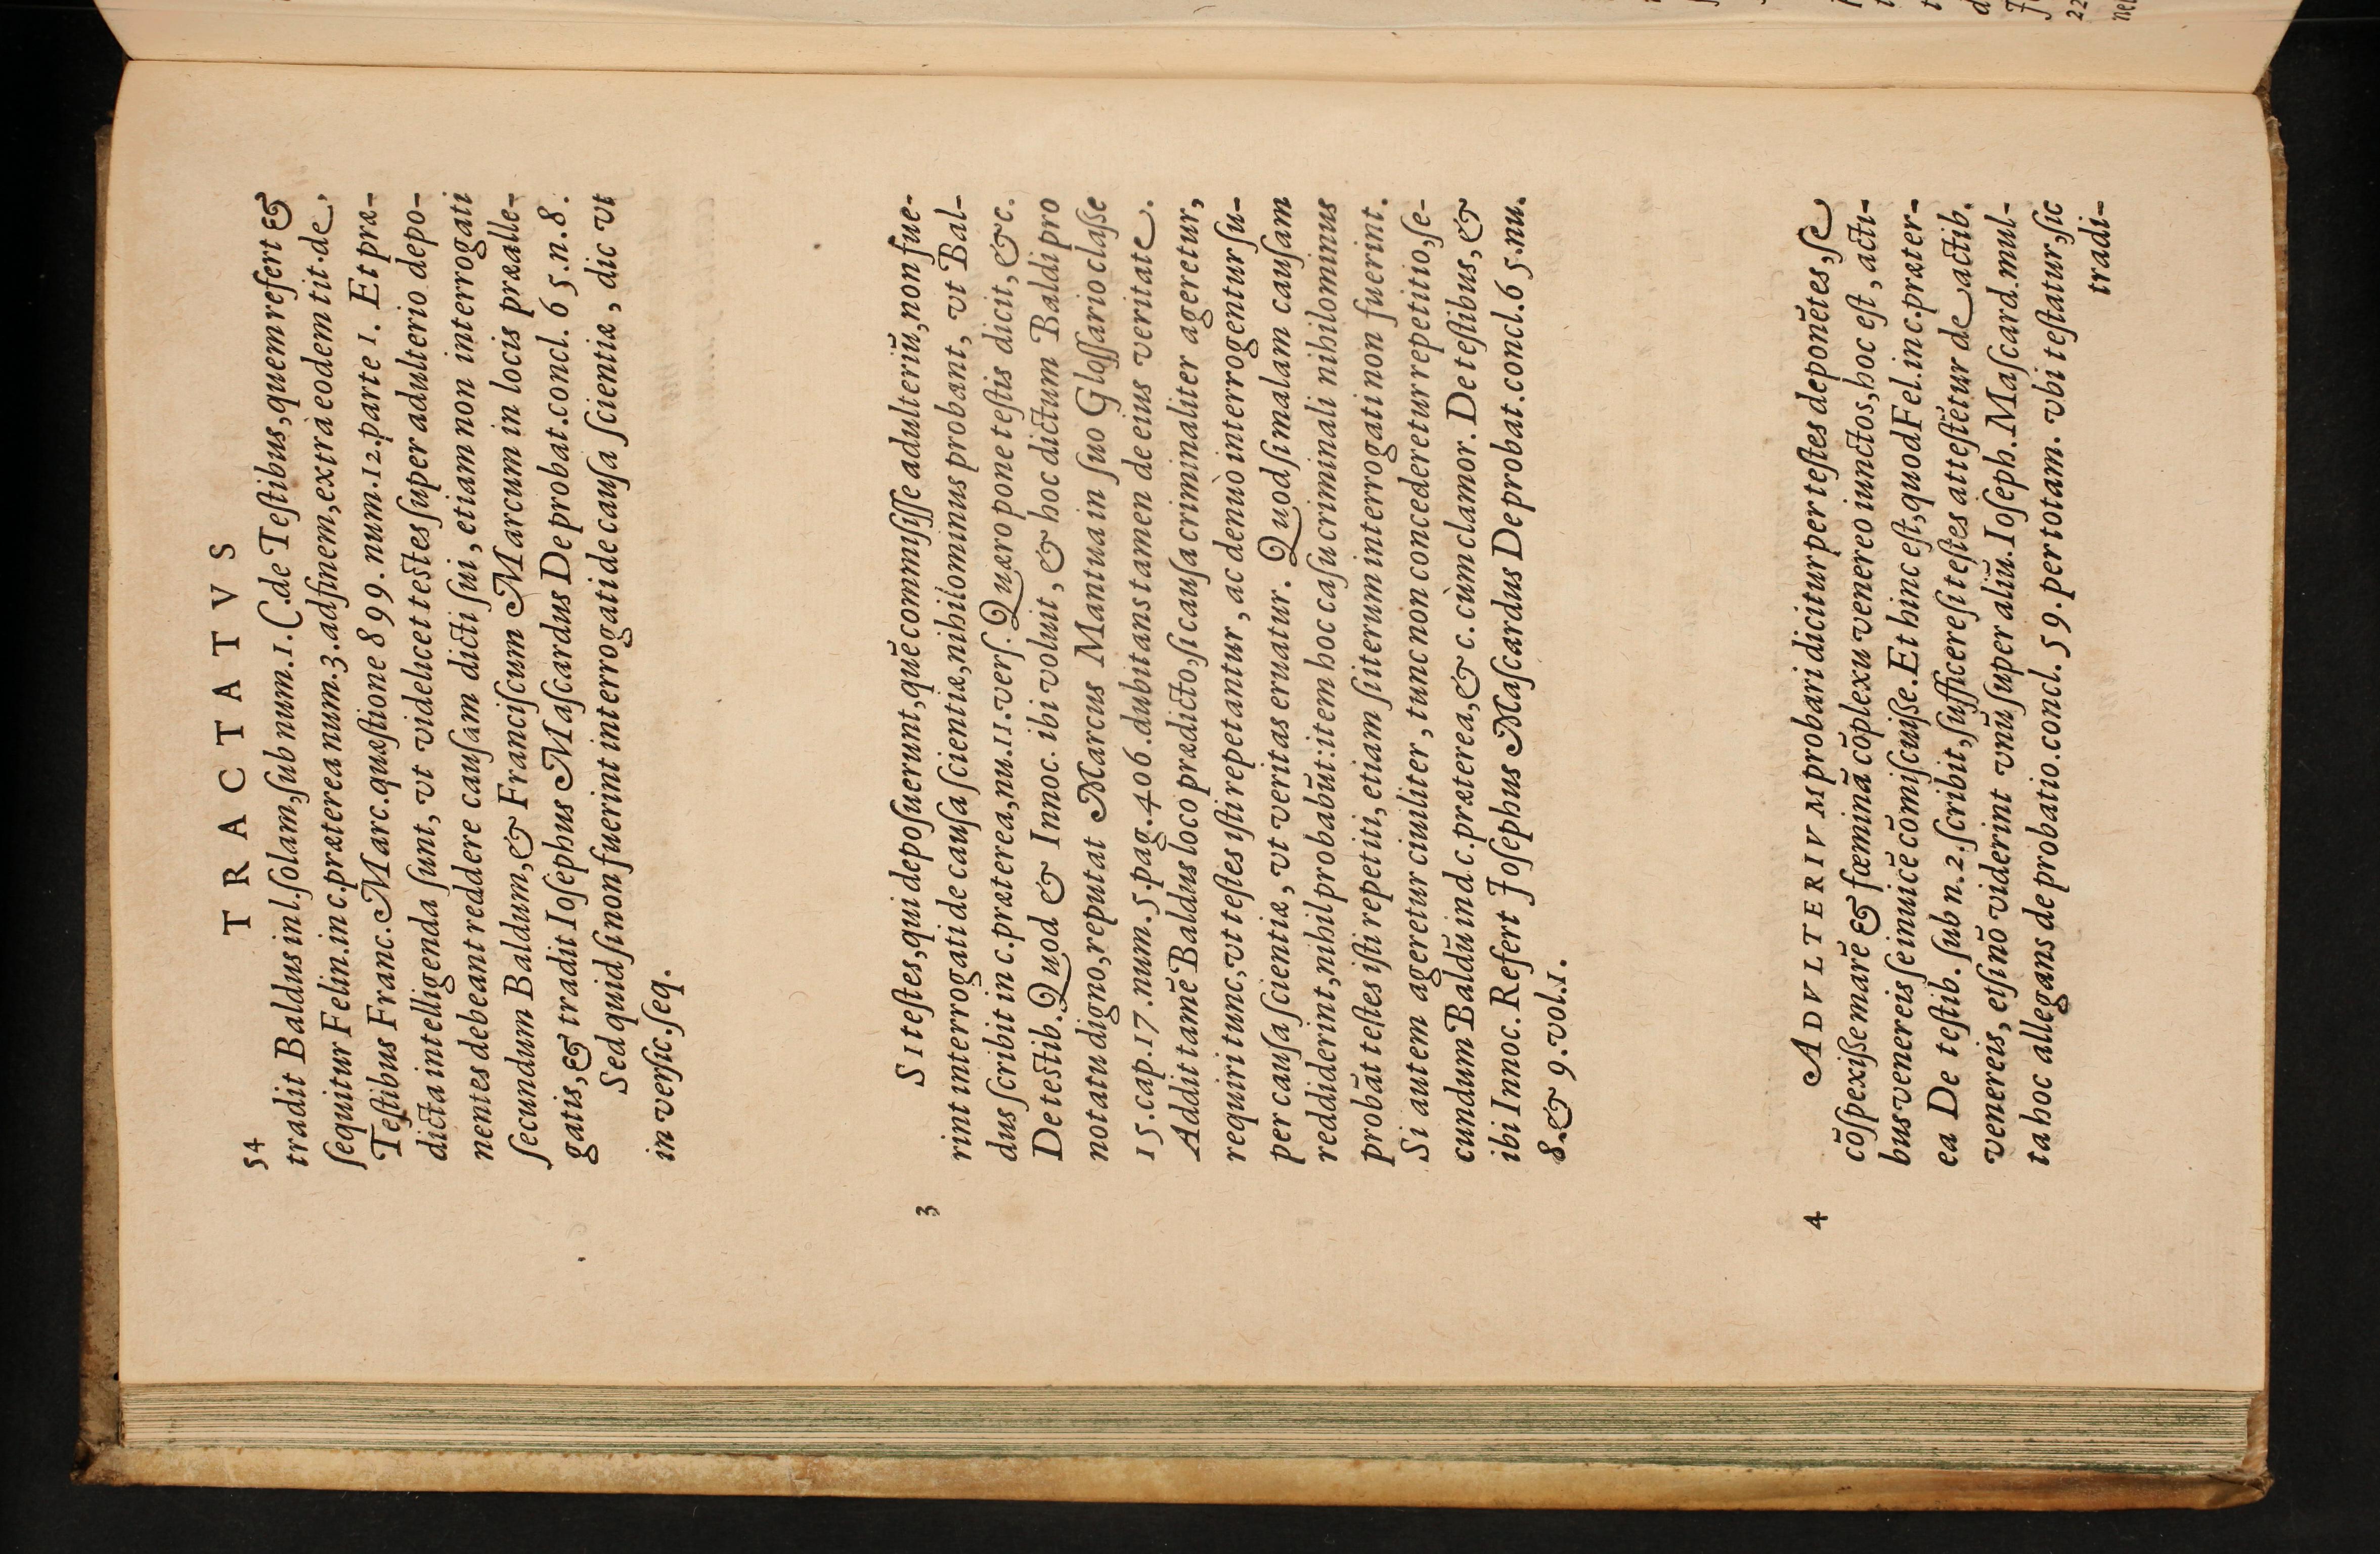 54
TRACTATVS
tradit Baldus in l. ſolam, ſub num. 1. C. de Teſtibus, quem refert &
ſequitur Felin. in c. præterea num. 3. ad finem, extrà eodem tit. de
Teſtibus Franc. Marc. quæſtione 899. num. 12. parte 1. Et præ-
dicta intelligenda ſunt, vt videlicet teſtes ſuper adulterio depo-
nentes debeant reddere cauſam dicti ſui, etiam non interrogati
ſecundum Baldum, & Franciſcum Marcum in locis prealle-
gatis, & tradit Ioſephus Maſcardus De probat. concl. 65. n. 8.
Sed quid ſi non fuerint interrogati de cauſa ſcientiæ, dic vt
in verſic. ſeq.
3
Si teſtes, qui depoſuerunt, quē commiſiſſe adulteriū, non fue-
rint interrogati de cauſa ſcientiæ, nihilominus probant, vt Bal-
dus ſcribit in c. præterea, nu. 11. verſ. Quæro pone teſtis dicit, &c.
De teſtib. Quod & Innoc. ibi voluit, & hoc dictum Baldi pro
notatu digno, reputat Marcus Mantua in ſuo Gloſſario claſſe
15. cap. 17. num. 5. pag. 406. dubitans tamen de eius veritate.
Addit tamē Baldus loco prædicto, ſi cauſa criminaliter ageretur,
requiri tunc, vt teſtes iſti repetantur, ac denuò interrogentur ſu-
per cauſa ſcientiæ, vt veritas eruatur. Quod ſi malam cauſam
reddiderint, nihil probabūt: item hoc caſu criminali nihilominus
probāt teſtes iſti repetiti, etiam ſi iterum interrogati non fuerint.
Si autem ageretur ciuiliter, tunc non concederetur repetitio, ſe-
cundum Baldū in d. c. præterea, & c. cùm clamor. De teſtibus, &
ibi Innoc. Refert Joſephus Maſcardus De probat. concl. 65. nu.
8. & 9. vol. 1.
4
ADVLTERIVM probari dicitur per teſtes deponētes, ſe
cōſpexiſſe marē & fœminā cōplexu venereo iunctos, hoc eſt, acti-
bus venereis ſe inuicē cōmiſcuiſſe. Et hinc eſt, quod Fel. in c. præter-
ea De teſtib. ſub n. 2. ſcribit, ſufficere ſi teſtes atteſtētur de actib.
venereis, etſi nō viderint vnū ſuper aliū. Ioſeph. Maſcard. mul-
ta hoc allegans de probatio. concl. 59. per totam. vbi teſtatur, ſic
tradi-